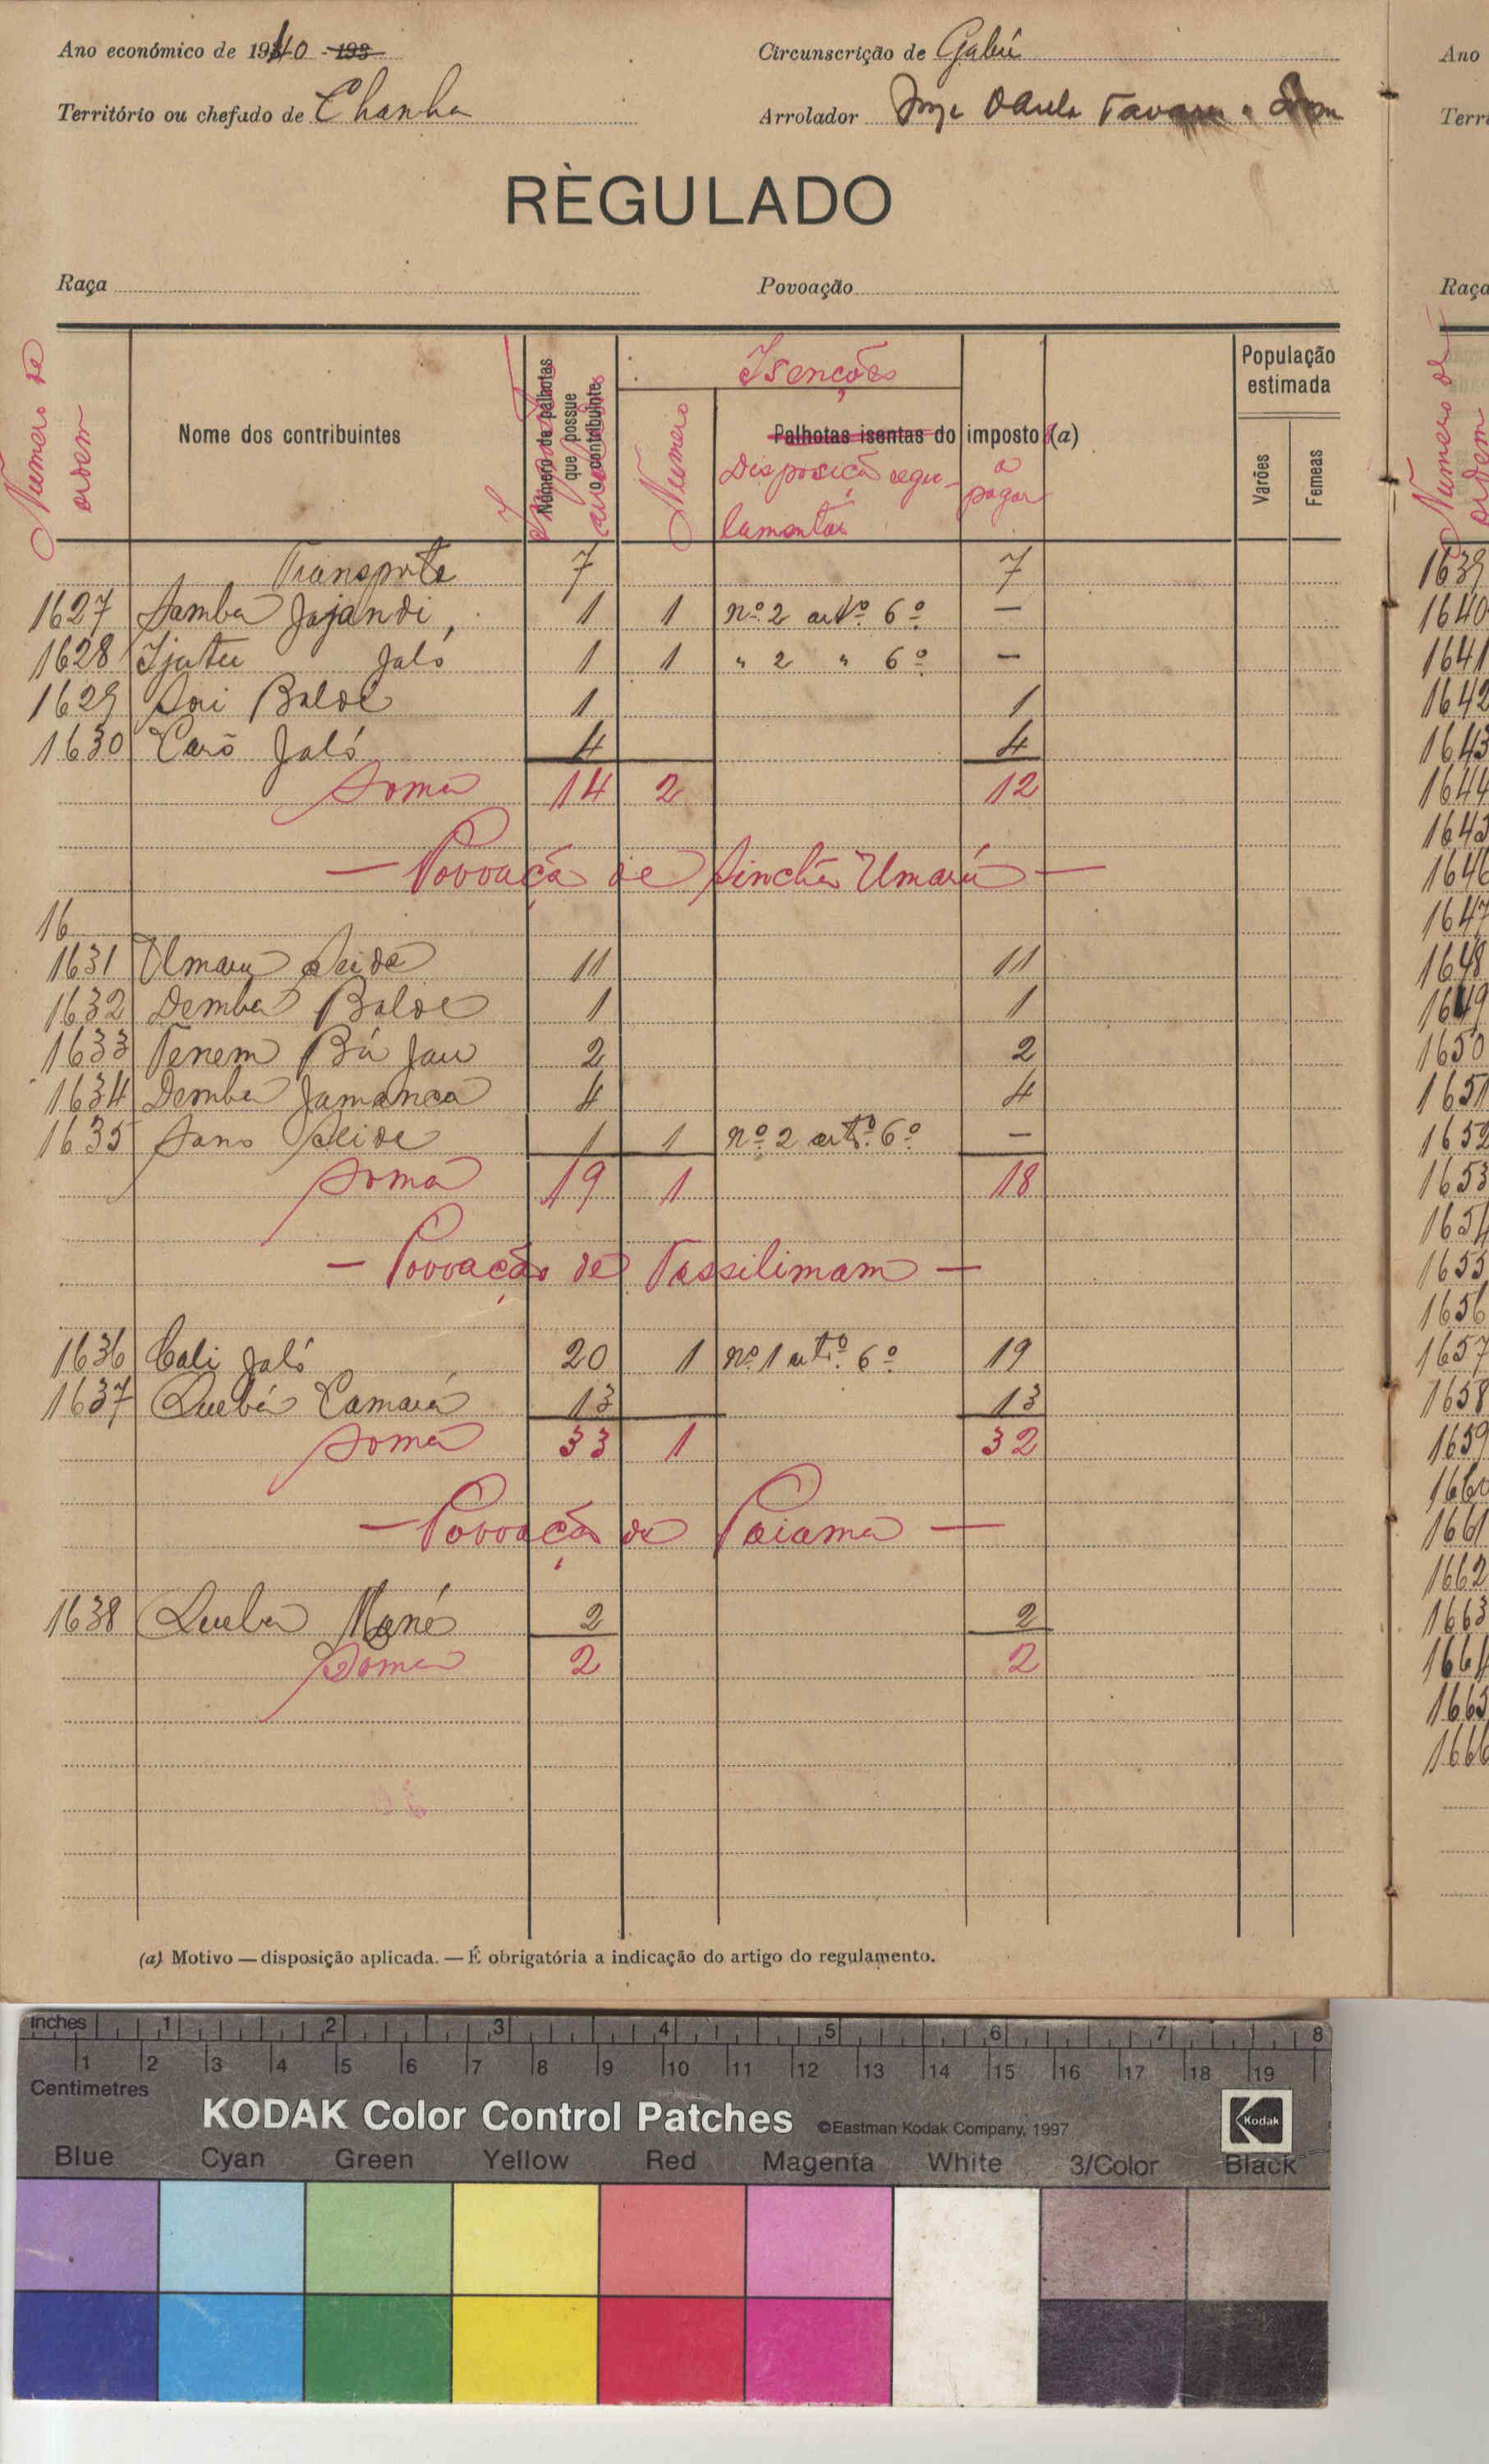 Ano económico de 1940 - 193
Circunscrição de Gabú
Ano
Território ou chefado de Chanha
Arrolador Jorge Tavares
Terri
RÈGULADO
Raça
Povoação
Raça
Numero de ordem
Nome dos contribuintes
Número de palhotas que possue o contribuinte
Isenções
Numero
Palhotas isentas do imposto (a)
Disposição regu-
lamentar
a pagar
População estimada
Varões
Femeas
Numero de ordem
Transporte 7 7
1627 Samba Jajandi, 1 1 nº 2 artº 6º —
1628 Ijatu Jaló 1 1 " 2 " 6º —
1629 Sori Baldé 1 1
1630 Carō Jaló 4 4
Soma 14 2 12
— Povoação de Sinchã Umarú —
16
1631 Umaru Seidé 11 11
1632 Demba Balde 1 1
1633 Tenem Bú Jau 2 2
1634 Demba Jamanca 4 4
1635 Sano Seide 1 1 nº 2 artº 6º —
Soma 19 1 18
— Povoação de Tassilimam —
1636 Cali Jaló 20 1 nº 1 artº 6º 19
1637 Quebá Camará 13 13
Soma 33 1 32
— Povoação de Paiama —
1638 Queba Mané 2 2
Soma 2 2
1639
1640
1641
1642
1643
1644
1645
1646
1647
1648
1649
1650
1651
1652
1653
1654
1655
1656
1657
1658
1659
1660
1661
1662
1663
1664
1665
1666
(a) Motivo — disposição aplicada. — É obrigatória a indicação do artigo do regulamento.
inches 1 2 3 4 5 6 7 8
1 2 3 4 5 6 7 8 9 10 11 12 13 14 15 16 17 18 19
Centimetres
KODAK Color Control Patches ©Eastman Kodak Company, 1997 Kodak
Blue Cyan Green Yellow Red Magenta White 3/Color Black